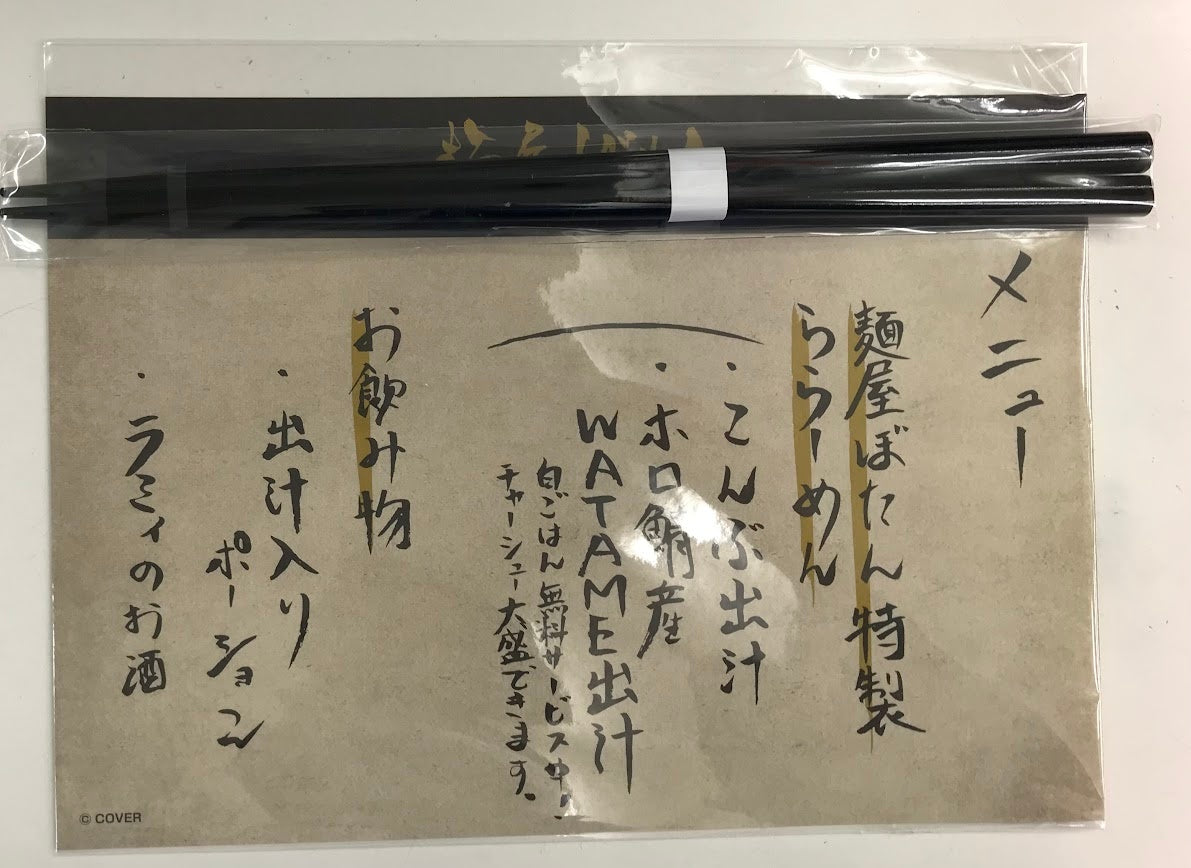 メニュー
麺屋ぼたん特製
ららーめん
・こんぶ出汁
・ホロ鯛産
WATAME出汁
白ごはん無料サービス中！
チャーシュー大盛できます。
お飲み物
・出汁入り
ポーション
・ラミィのお酒
© COVER